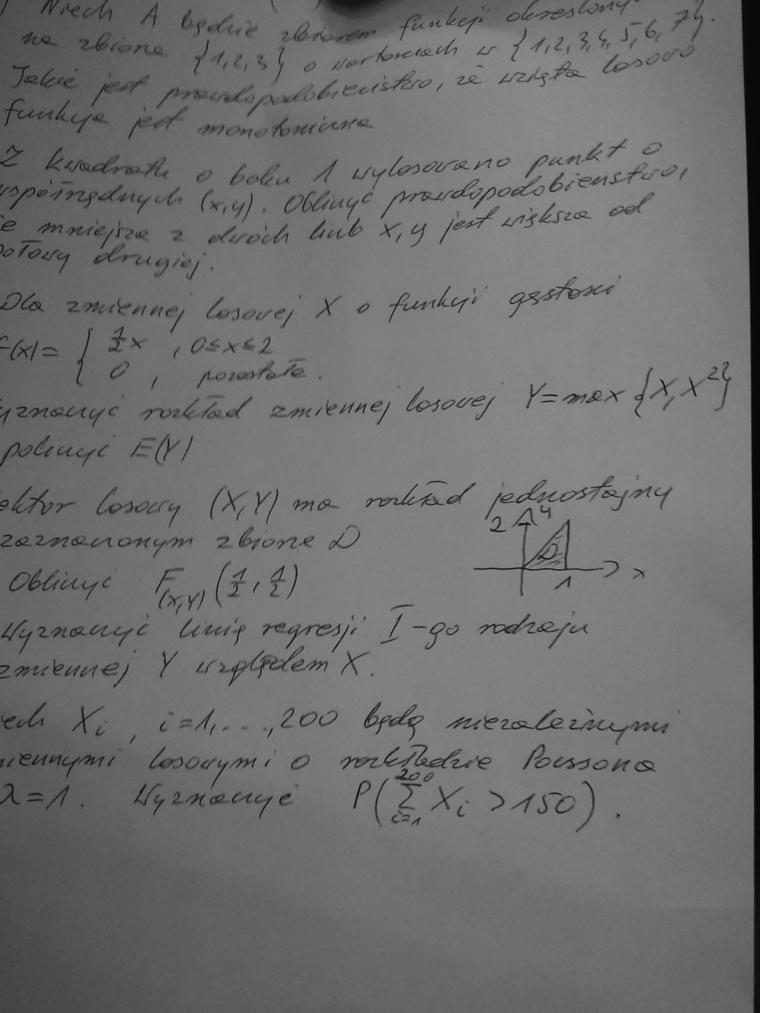 Niech A będzie zbiorem funkcji określony
na zbiorze {1,2,3} o wartościach w {1,2,3,4,5,6,7}.
Jakie jest prawdopodobieństwo, że wzięta losowo
funkcja jest monotoniczna
Z kwadratu o boku 1 wylosowano punkt o
współrzędnych (x,y). Obliczyć prawdopodobieństwo,
że mniejsza z dwóch liczb x,y jest większa od
połowy drugiej.
Dla zmiennej losowej X o funkcji gęstości
f(x)= { 1/2 x , 0≤x≤2
0 , pozostałe.
yznaczyć rozkład zmiennej losowej Y=max{X, X²}
policzyć E(Y)
ektor losowy (X,Y) ma rozkład jednostajny
zaznaczonym zbiorze D
2 y
D
1 x
Obliczyć F(X,Y) (1/2, 1/2)
Wyznaczyć linię regresji I-go rodzaju
zmiennej Y względem X.
iech Xi, i=1,...,200 będą niezależnymi
miennymi losowymi o rozkładzie Poissona
λ=1. Wyznaczyć P(∑ i=1 200 Xi >150).